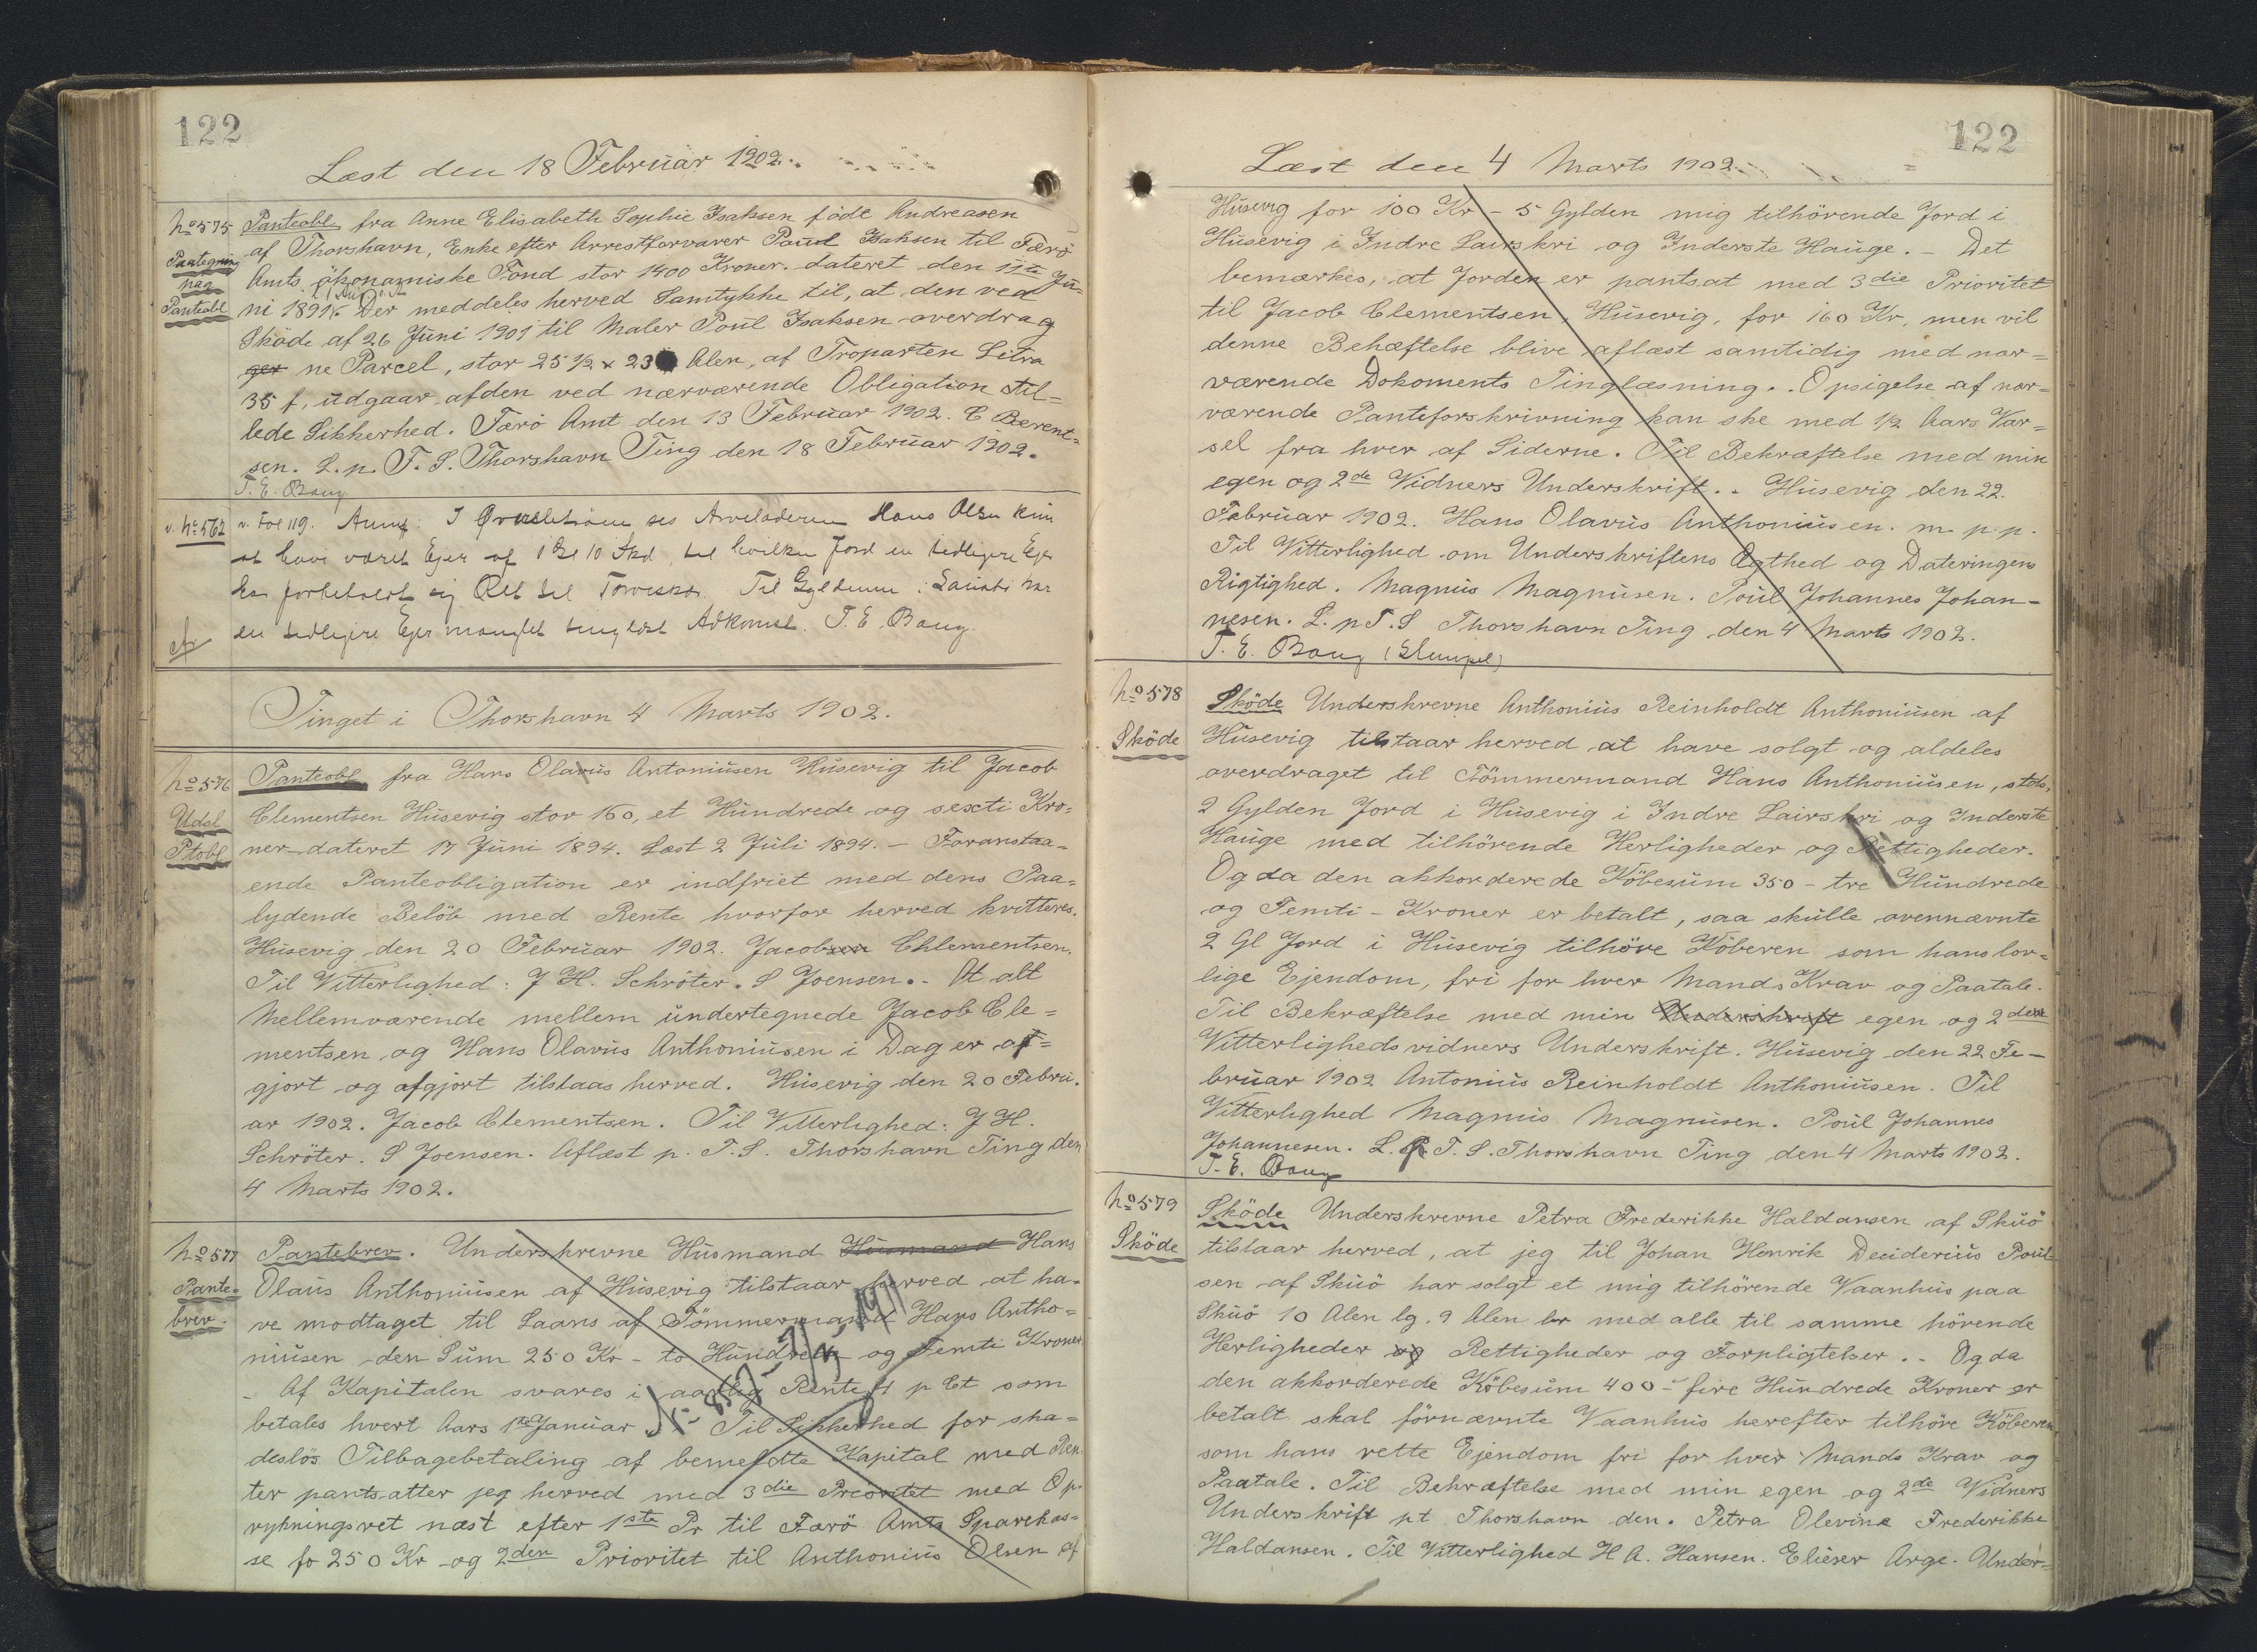 122
Læst den 18 Februar 1902.
No 575 Panteobl fra Anne Elisabeth Sophie Isaksen födt Andreasen
af Thorshavn, Enke efter Arrestforvarer Poul Isaksen til Færö
Paategning paa Panteobl
Amts ökonomiske Fond stor 1400 Kroner dateret den 11te Ju=
ni 1891. Der meddeles herved Samtykke til, at den ved
Sköde af 26 Juni 1901 til Maler Poul Isaksen overdrag
ger ne Parcel, stor 25 1/2 x 23 Alen, af Troparten Litra
35 f, udgaar af den ved nærværende Obligation stil=
lede Sikkerhed. Færö Amt den 13 Februar 1902. C Bærent=
sen. L. p. T. S. Thorshavn Ting den 18 Februar 1902.
T. E. Bang
v. No 562 v. Fol 119. Anm: I ses Arveladeren Hans Olsen kun
at have været Ejer af 1 Gl 10 Skd, til hvilken Jord en tidligere Ejer
har forbeholdt sig Ret til Torveskær. Til Gyldenen i har
den tidligere Ejer manglet tinglæst Adkomst. T. E. Bang.
Tinget i Thorshavn 4 Marts 1902.
No 576 Panteobl fra Hans Olavus Antoniusen Husevig til Jacob
Udsl Ptobl
Clementsen Husevig stor 160, et Hundrede og sexti Kro=
ner dateret 17 Juni 1894. Læst 2 Juli 1894. - Foranstaa=
ende Panteobligation er indfriet med dens Paa=
lydende Belöb med Rente hvorfor herved kvitteres.
Husevig den 20 Februar 1902. Jacobsen Chlementsen.
Til Vitterlighed: J H. Schröter. S Joensen. - At alt
Mellemværende mellem undertegnede Jacob Cle=
mentsen og Hans Olavus Anthoniusen i Dag er af=
gjort og afgjort tilstaas herved. Husevig den 20 Febru.
ar 1902. Jacob Clementsen. Til Vitterlighed: J H.
Schröter. S Joensen. Aflæst p. T. S. Thorshavn Ting den
4 Marts 1902.
No 577 Pantebrev. Underskrevne Husmand Husmand Hans
Pante= brev.
Olaus Anthoniusen af Husevig tilstaar herved at ha=
ve modtaget til Laans af Tömmermand Hans Antho=
niusen den Sum 250 Kr - to Hundrede og Femti Kroner
- Af Kapitalen svares i aarlig Rente 4 p Ct som
betales hvert Aars 1ste Januar. Til Sikkerhed for ska=
deslös Tilbagebetaling af bemeldte Kapital med Ren
ter pantsatter jeg herved med 3die Preoritet med Op=
rykningsret næst efter 1ste Pr til Færö Amts Sparekas=
se fo 250 Kr og 2den Prioritet til Anthonius Olsen af
122
Læst den 4 Marts 1902.
Husevig for 100 Kr - 5 Gylden mig tilhörende Jord i
Husevig i Indre Lairskri og Inderste Hauge. - Det
bemærkes, at Jorden er pantsat med 3die Prioritet
til Jacob Clementsen, Husevig, for 160 Kr, men vil
denne Behæftelse blive aflæst samtidig med nær=
værende Dokoments Tinglæsning. . Opsigelse af nær=
værende Panteforskrivning kan ske med 1/2 Aars Var=
sel fra hver af Siderne. Til Bekræftelse med min
egen og 2de Vidners Underskrift. . Husevig den 22.
Februar 1902. Hans Olavus Anthoniusen. m p. p.
Til Vitterlighed om Underskriftens Ægthed og Dateringens
Rigtighed. Magnus Magnusen. Poul Johannes Johan-
nesen. L. p T. S Thorshavn Ting den 4 Marts 1902.
T. E. Bang (Stempel)
No 578 Sköde Underskrevne Anthonius Reinholdt Anthoniusen af
Sköde
Husevig tilstaar herved at have solgt og aldeles
overdraget til Tömmermand Hans Anthoniusen, stds,
2 Gylden Jord i Husevig i Indre Lairskri og Inderste
Hauge med tilhörende Herligheder og Rettigheder.
Og da den akkorderede Köbesum 350 - tre Hundrede
og Femti - Kroner er betalt, saa skulle ovennævnte
2 Gl Jord i Husevig tilhöre Köberen som hans lov=
lige Ejendom, fri for hver Mands Krav og Paatale.
Til Bekræftelse med min Underskrift egen og 2de
Vitterligheds vidners Underskrift. Husevig den 22 Fe-
bruar 1902 Antonius Reinholdt Anthoniusen. Til
Vitterlighed Magnus Magnusen. Poul Johannes
Johannesen. L. p. T. S. Thorshavn Ting den 4 Marts 1902.
T. E. Bang
No 579 Sköde Underskrevne Petra Frederikke Haldansen af Skuö
Sköde
tilstaar herved, at jeg til Johan Henrik Deciderius Poul
sen af Skuö har solgt et mig tilhörende Vaanhus paa
Skuö 10 Alen lg. 9 Alen br med alle til samme hörende
Herligheder og Rettigheder og Forpligtelser. - Og da
den akkorderede Köbesum 400 - fire Hundrede Kroner er
betalt skal förnævnte Vaanhus herefter tilhöre Köberen
som hans rette Ejendom fri for hver Mands Krav og
Paatale. Til Bekræftelse med min egen og 2de Vidners
Underskrift pt Thorshavn den. Petra Olevine Frederikke
Haldansen. Til Vitterlighed H A. Hansen. Elieser Arge. Under=